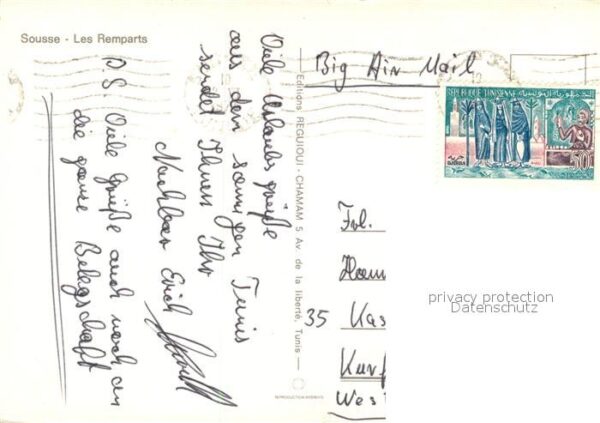 Sousse - Les Remparts
Viele Urlaubsgrüße
aus dem sonnigen Tunis
sendet Ihnen Ihr
Nachbar Erich
P.S Viele Grüße auch noch an
die ganze Belegschaft
Editions REGUIOUI - CHAMAM 5 Av. de la liberté, Tunis
Big Air Mail
REPUBLIQUE TUNISIENNE
DJERBA
Frl.
Ham
35 Kas
Kurf
West
privacy protection
Datenschutz